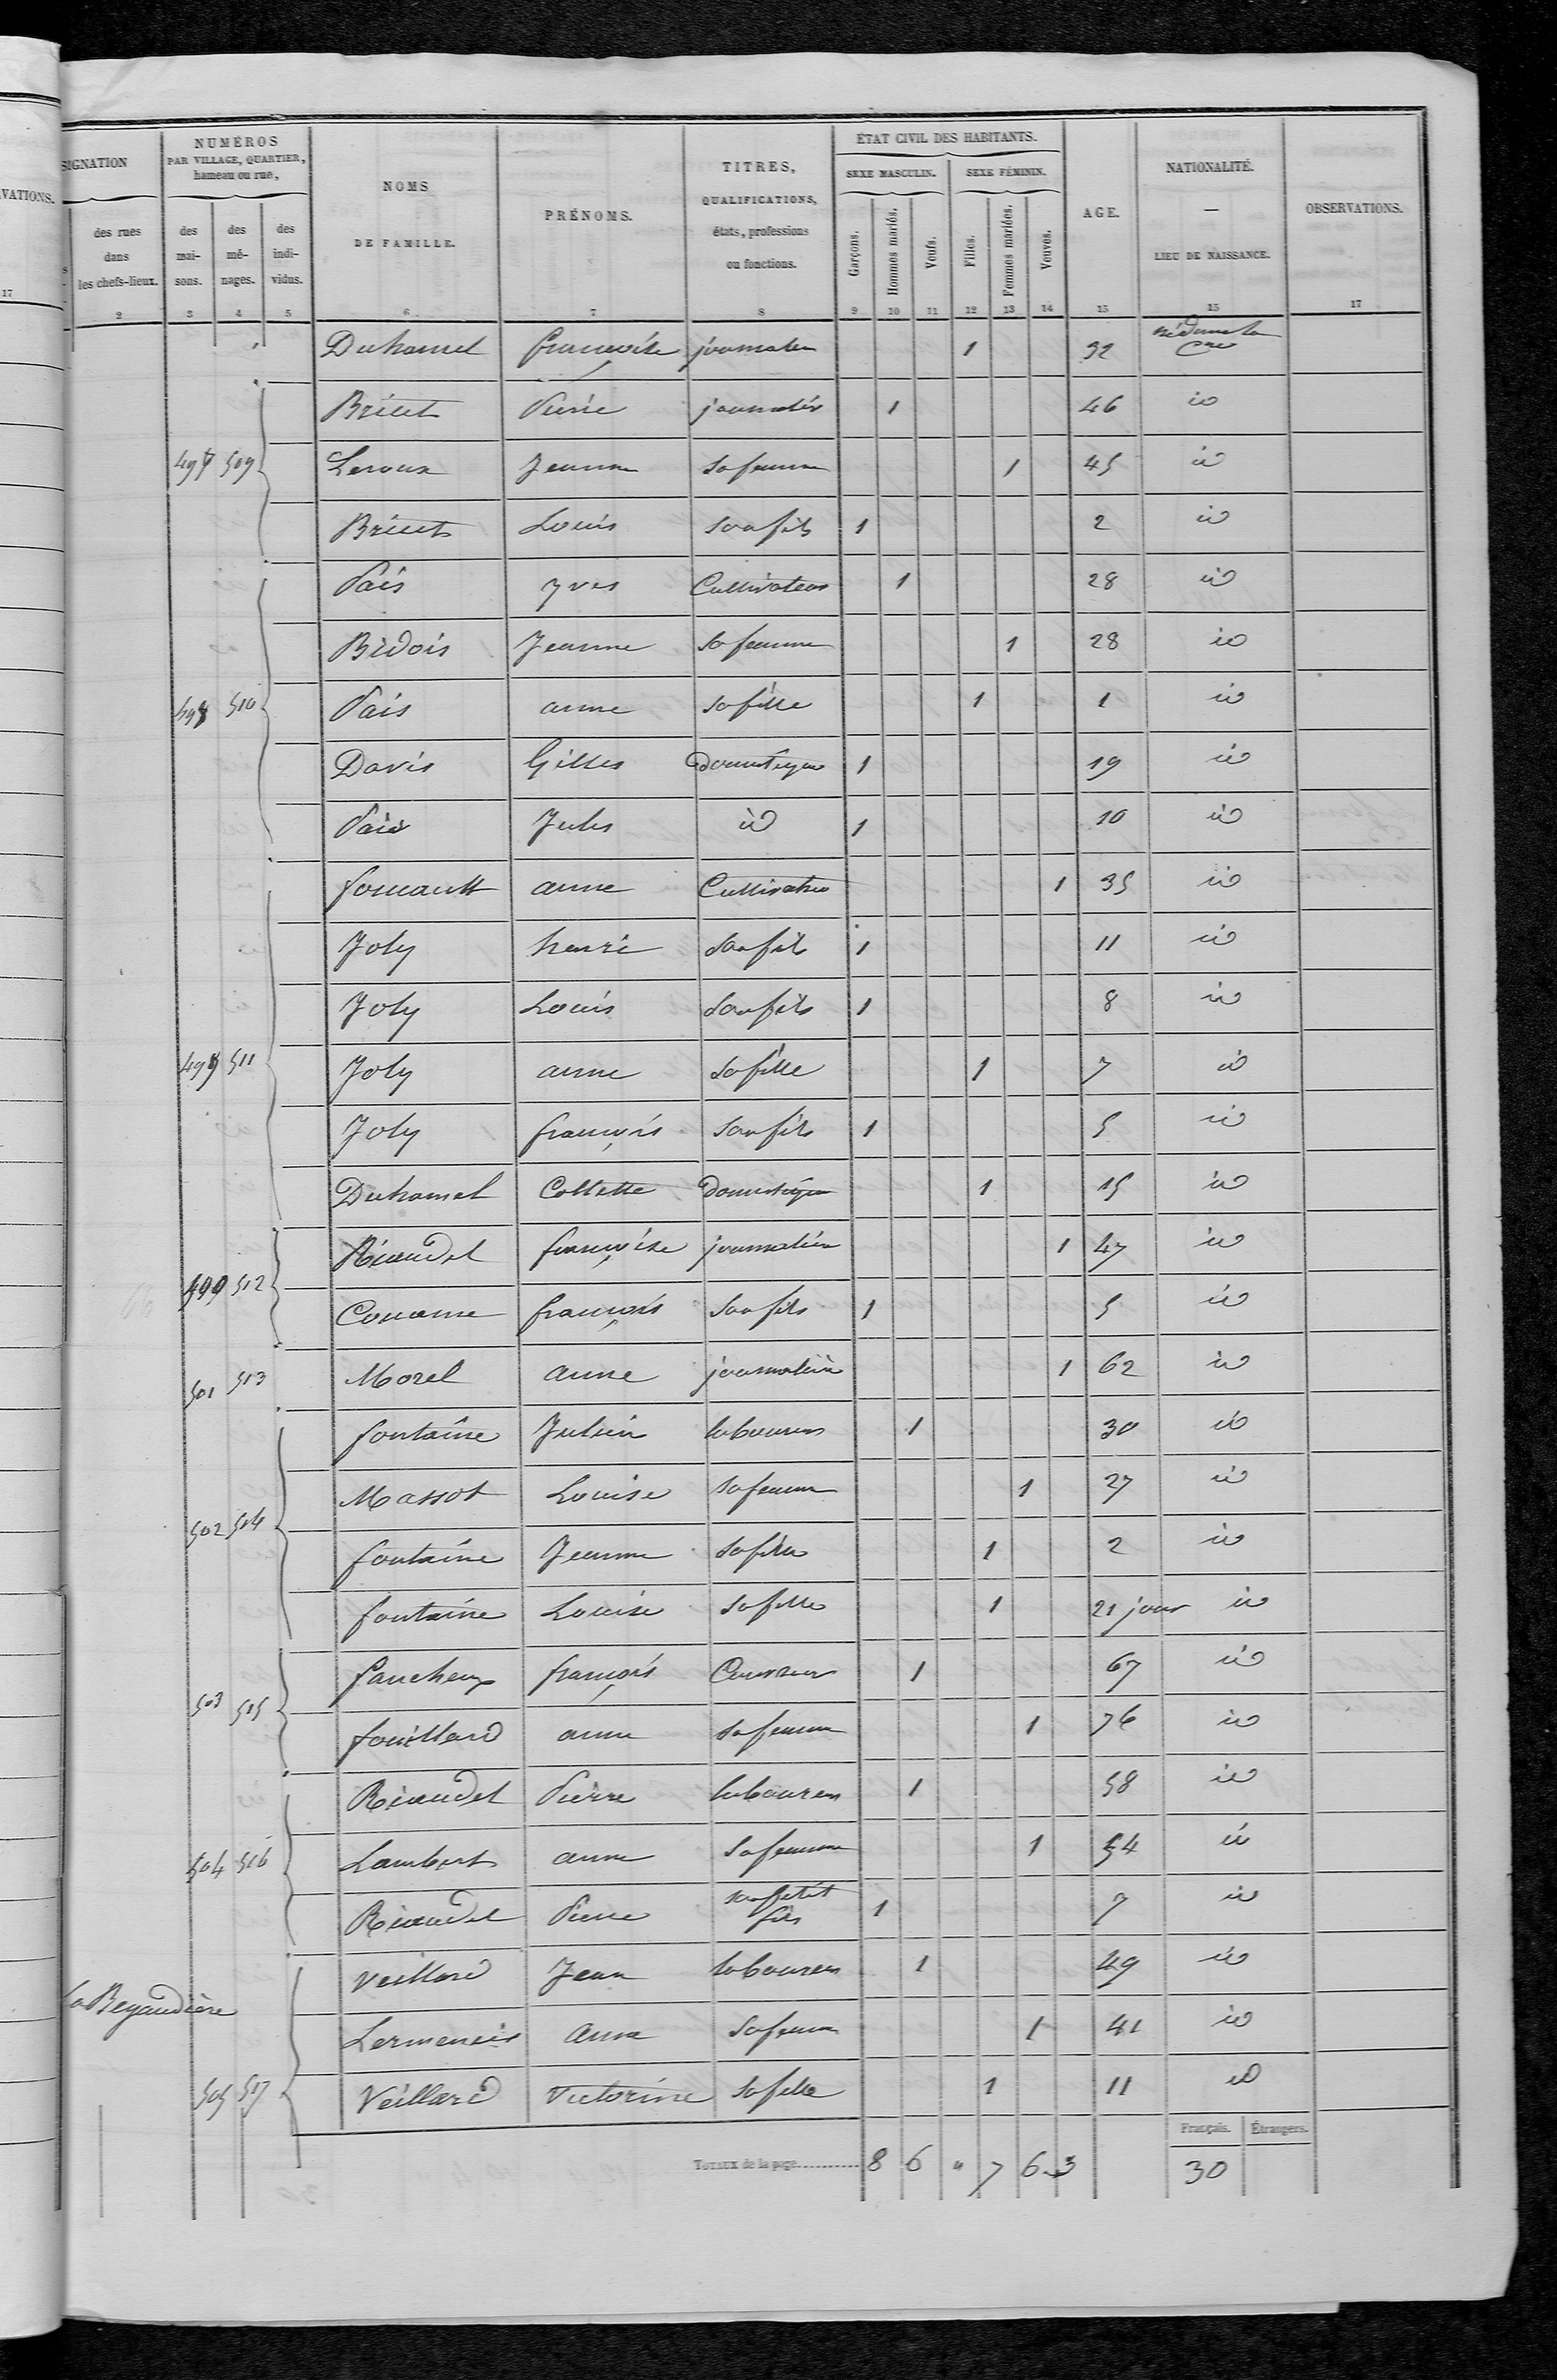 NUMÉROS
PAR VILLAGE, QUARTIER,
hameau ou rue,
SIGNATION
VATIONS.
des rues
dans
les chefs-lieux.
des
mai-
sons.
des
mé-
nages.
des
indi-
vidus.
NOMS
DE FAMILLE.
PRÉNOMS.
TITRES,
QUALIFICATIONS,
états, professions
ou fonctions.
ÉTAT CIVIL DES HABITANTS.
SEXE MASCULIN. SEXE FÉMININ.
Garçons.
Hommes mariés.
Veufs.
Filles.
Femmes mariées.
Veuves.
AGE.
NATIONALITÉ.
—
LIEU DE NAISSANCE.
OBSERVATIONS.
17
2 3 4 5 6 7 8 9 10 11 12 13 14 15 15 17
Duhamel françoise journalière 1 32
Bricet Pierre journalier 1 46 id
497 509 Leroux Jeanne sa femme 1 45 id
Bricet Louis son fils 1 2 id
Pais yves Cultivateur 1 28 id
Bidois Jeanne sa femme 1 28 id
498 510 Pais anne sa fille 1 1 id
Davis Gilles domestique 1 19 id
Pais Jules id 1 10 id
anne Cultivatrice 1 35 id
Joly henri son fils 1 11 id
Joly Louis son fils 1 8 id
499 511 Joly anne sa fille 1 7 id
Joly françois son fils 1 5 id
Duhamel Collette domestique 1 15 id
françoise journalière 1 47 id
499 512 Couanne françois son fils 1 5 id
501 513 Morel anne journalière 1 62 id
fontaine Julien laboureur 1 30 id
Massot Louise sa femme 1 27 id
502 514 fontaine Jeanne sa fille 1 2 id
fontaine Louise sa fille 1 21 jour id
503 515 faucheux françois 1 67 id
fouillard anne sa femme 1 76 id
Pierre laboureur 1 58 id
504 516 Lambert anne sa femme 1 54 id
Pierre son petit
fils 1 7 id
Veillard Jean laboureur 1 49 id
la Begaudière
anne sa femme 1 41 id
505 517 Veillard Victorine sa fille 1 11 id
Français. Étrangers.
TOTAUX de la page 8 6 " 7 6 3 30